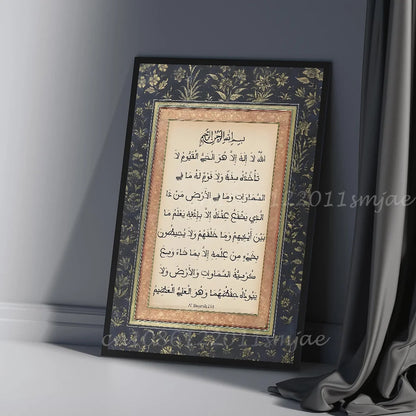 بسم الله الرحمن الرحيم
الله لا إله إلا هو الحي القيوم لا
تأخذه سنة ولا نوم له ما في
السماوات وما في الأرض من ذا
الذي يشفع عنده إلا بإذنه يعلم ما
بين أيديهم وما خلفهم ولا يحيطون
بشيء من علمه إلا بما شاء وسع
كرسيه السماوات والأرض ولا
يئوده حفظهما وهو العلي العظيم